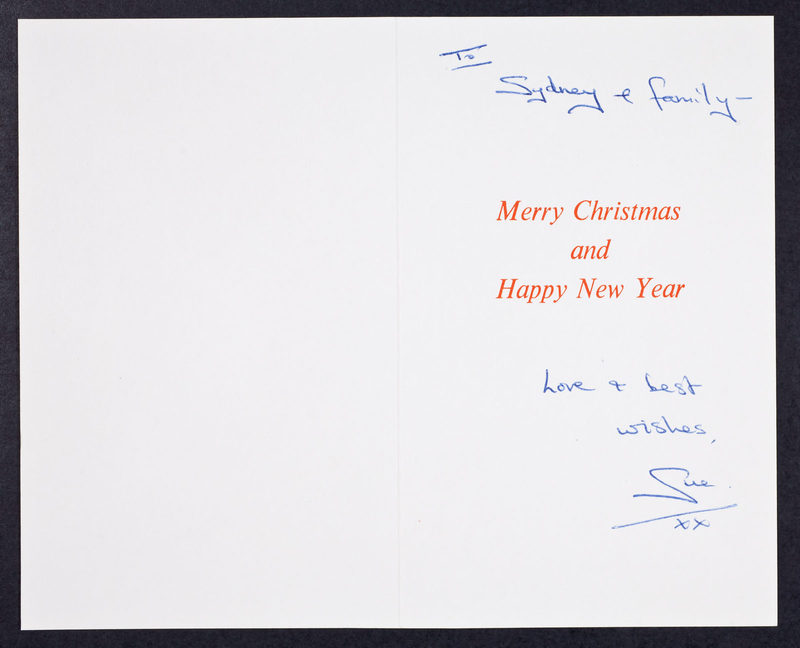 To
Sydney & family -
Merry Christmas
and
Happy New Year
Love & best
wishes,
Sue.
xx